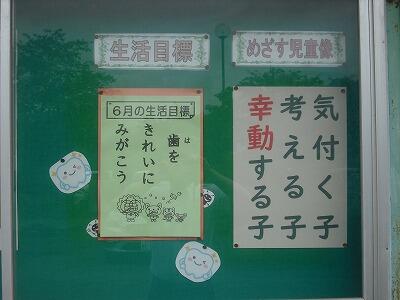 生活目標
めざす児童像
6月の生活目標
歯を
は
きれいに
みがこう
気付く子
考える子
幸動する子